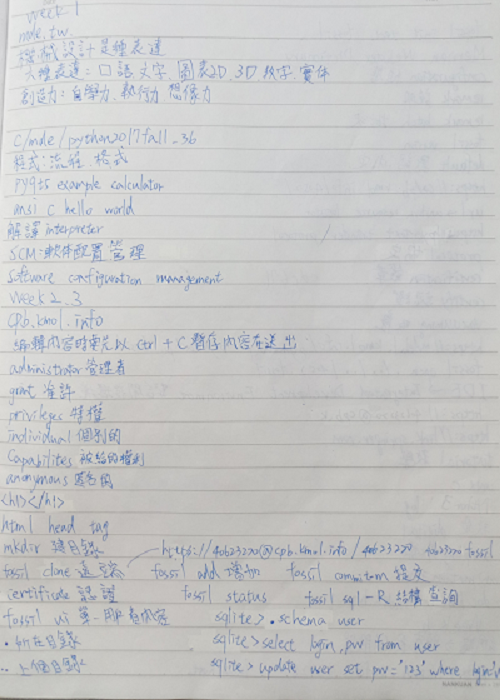 week 1
mde.tw
機械設計是種表達
六種表達：口語、文字、圖表2D、3D、數字、實体
創造力：自學力、執行力、想像力
C/mde/python2017fall_36
程式：流程、格式
pyqt5 example calculator
ansi c hello world
解譯 interpreter
SCM：軟体配置管理
Software configuration management
week 2.3
cpb.kmol.info
編輯內容時要先以 ctrl + C 暫存內容在送出
administrator 管理者
grant 准許
privileges 特權
individual 個別的
Capabilites 被給的權利
anonymous 匿名的
<h1></h1>
html head tag
mkdir 建目錄 https://40623220@cpb.kmol.info/40623220 40623220 fossil
fossil clone fossil add 增加 fossil commit 提交
certificate 認證 fossil status fossil sql -R 結構查詢
fossil ui sqlite> .schema user
. 所在目錄 sqlite> select login, pw from user
.. 上個目錄 sqlite> update user set pw='123' where login=